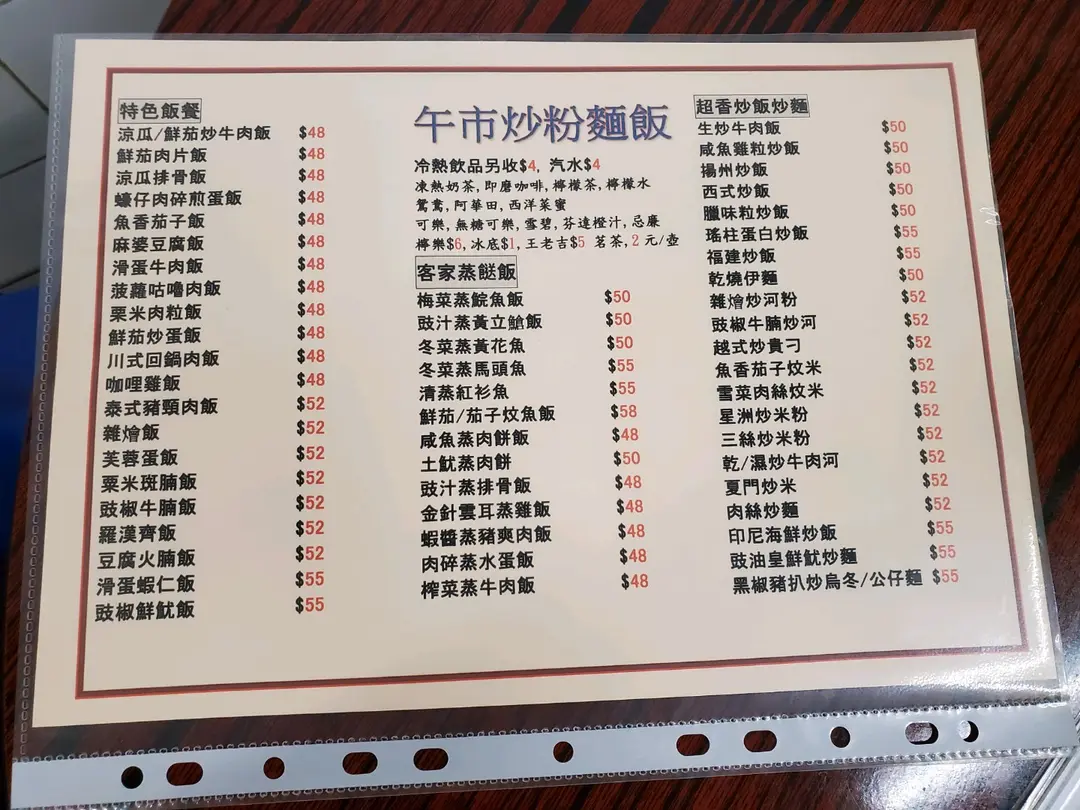 特色飯餐
涼瓜/鮮茄炒牛肉飯 $48
鮮茄肉片飯 $48
涼瓜排骨飯 $48
蠔仔肉碎煎蛋飯 $48
魚香茄子飯 $48
麻婆豆腐飯 $48
滑蛋牛肉飯 $48
菠蘿咕嚕肉飯 $48
粟米肉粒飯 $48
鮮茄炒蛋飯 $48
川式回鍋肉飯 $48
咖哩雞飯 $48
泰式豬頸肉飯 $52
雜燴飯 $52
芙蓉蛋飯 $52
粟米斑腩飯 $52
豉椒牛腩飯 $52
羅漢齊飯 $52
豆腐火腩飯 $52
滑蛋蝦仁飯 $55
豉椒鮮魷飯 $55
午市炒粉麵飯
冷熱飲品另收$4, 汽水$4
凍熱奶茶,即磨咖啡,檸檬茶,檸檬水
鴛鴦,阿華田,西洋菜蜜
可樂,無糖可樂,雪碧,芬達橙汁,忌廉
檸樂$6,冰底$1,王老吉$5 茗茶,2 元/壺
客家蒸餸飯
梅菜蒸鯇魚飯 $50
豉汁蒸黃立鯧飯 $50
冬菜蒸黃花魚 $50
冬菜蒸馬頭魚 $55
清蒸紅衫魚 $55
鮮茄/茄子炆魚飯 $58
咸魚蒸肉餅飯 $48
土魷蒸肉餅 $50
豉汁蒸排骨飯 $48
金針雲耳蒸雞飯 $48
蝦醬蒸豬爽肉飯 $48
肉碎蒸水蛋飯 $48
榨菜蒸牛肉飯 $48
超香炒飯炒麵
生炒牛肉飯 $50
咸魚雞粒炒飯 $50
揚州炒飯 $50
西式炒飯 $50
臘味粒炒飯 $50
瑤柱蛋白炒飯 $55
福建炒飯 $55
乾燒伊麵 $50
雜燴炒河粉 $52
豉椒牛腩炒河 $52
越式炒貴刁 $52
魚香茄子炆米 $52
雪菜肉絲炆米 $52
星洲炒米粉 $52
三絲炒米粉 $52
乾/濕炒牛肉河 $52
夏門炒米 $52
肉絲炒麵 $52
印尼海鮮炒飯 $55
豉油皇鮮魷炒麵 $55
黑椒豬扒炒烏冬/公仔麵 $55